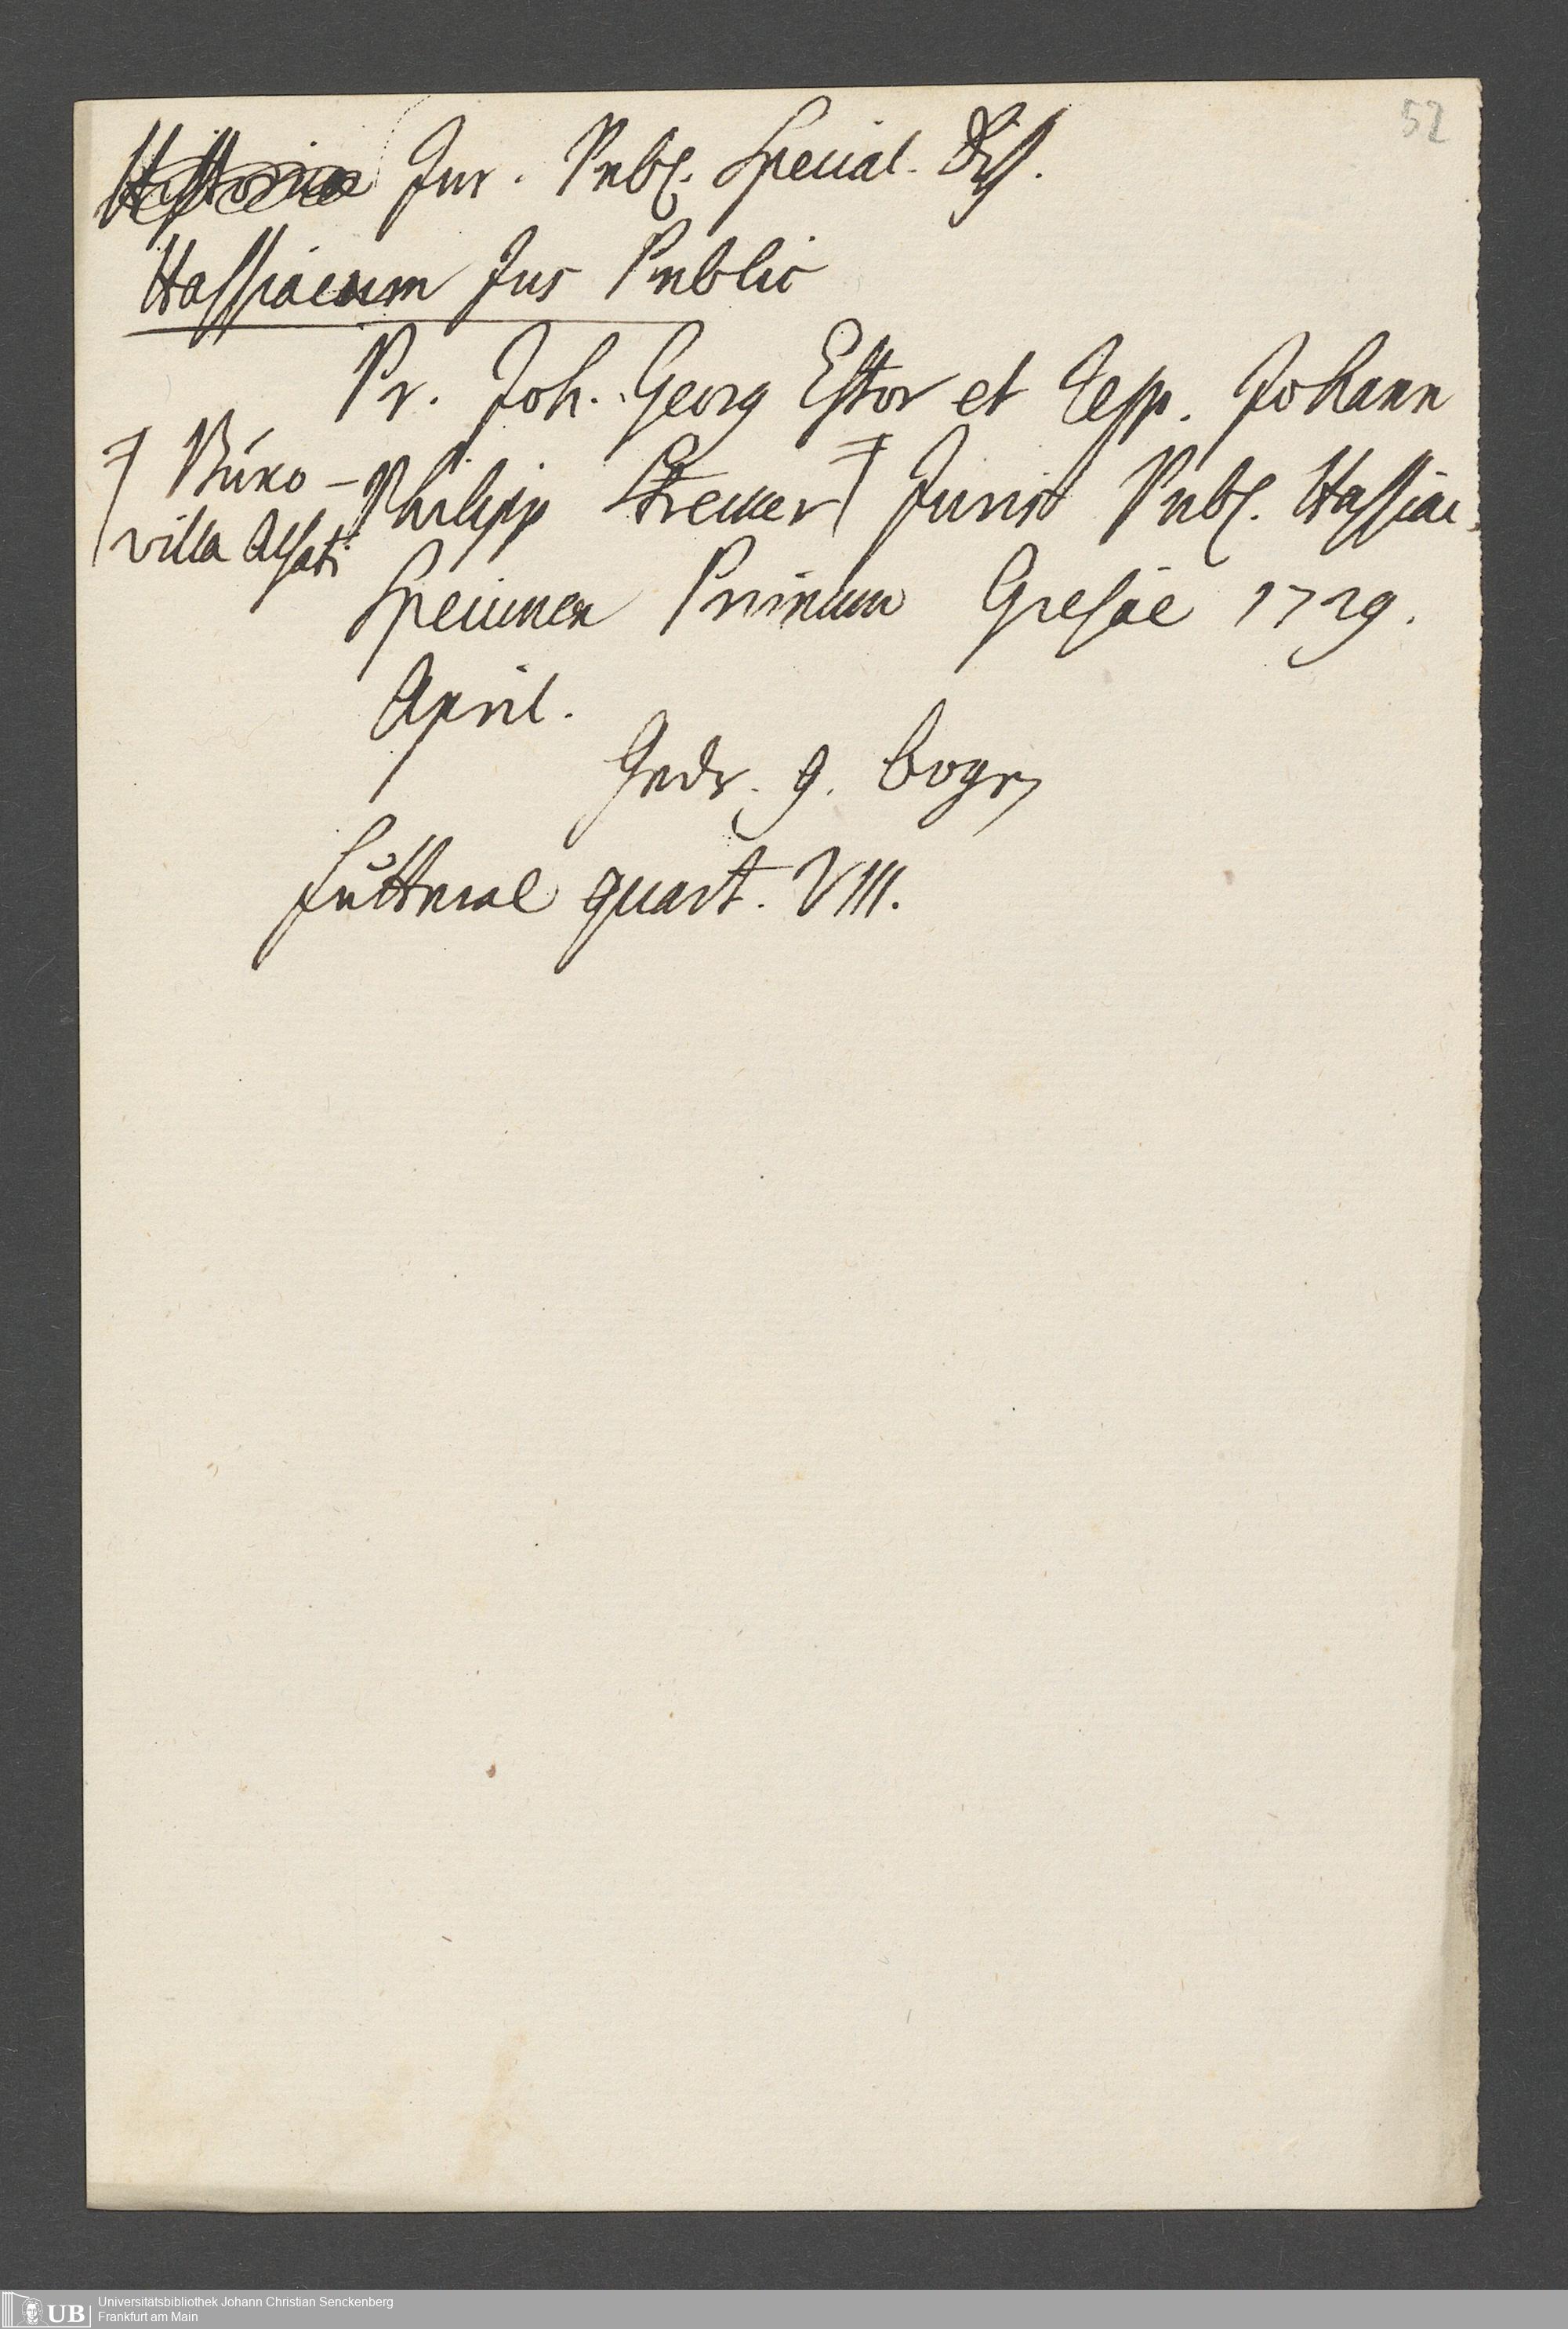 52
Historia Jur. Publ. Special. Diss.
Hassiacum Jus Public
Pr. Joh. Georg Estor et Resp. Johann
Philipp Strecker Juris Publ. Hassiac.
Buxo-
villa Alsat.
Specimen Primum Giesae 1729.
April.
Gedr. 9. bogen
futteral quart. VIII.
UB Universitätsbibliothek Johann Christian Senckenberg
Frankfurt am Main